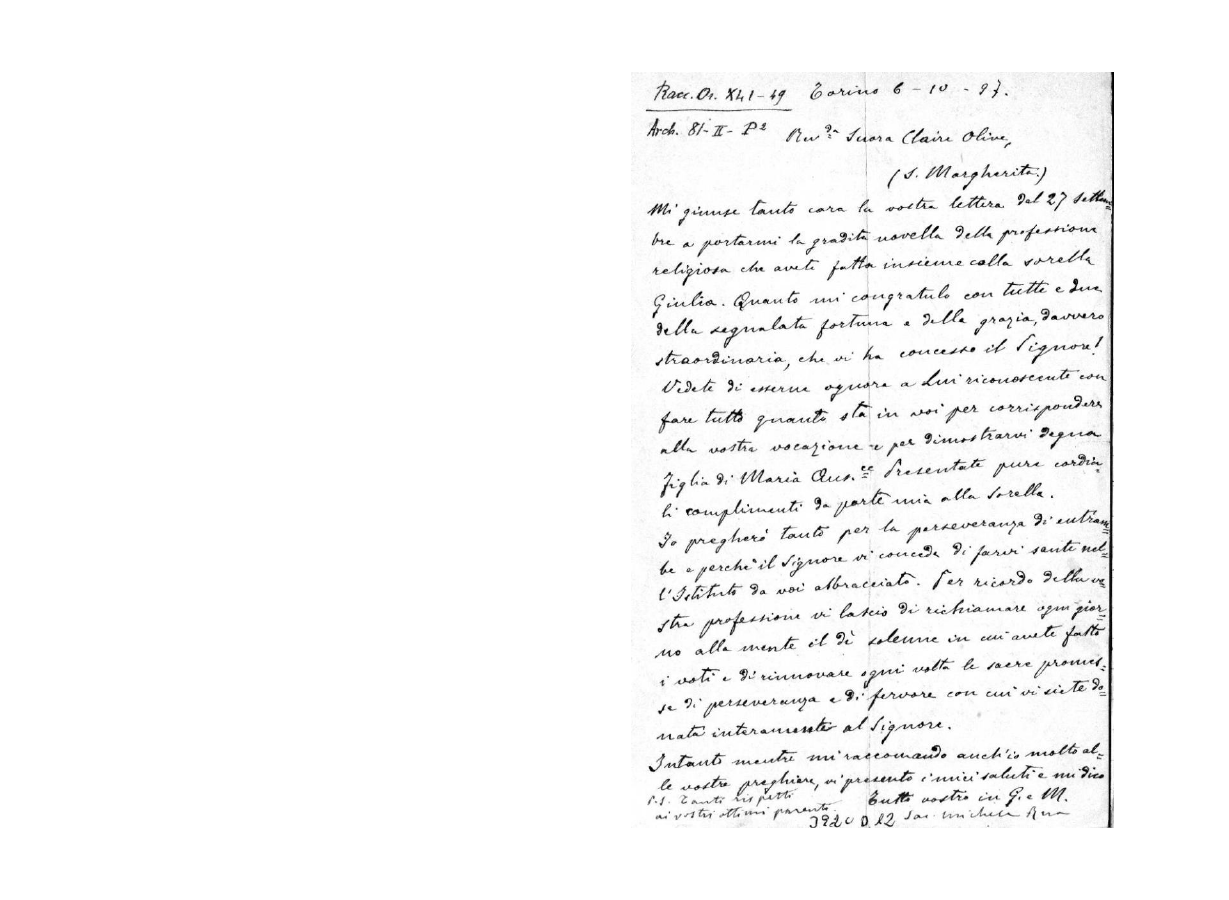 Racc. Or. XLI - 49 Torino 6 - 10 - 97.
Arch. 81 - II - P²
Revda Suora Claire Olive,
(S. Margherita.)
Mi giunse tanto cara la vostra lettera del 27 settem=
bre a portarmi la gradita novella della professione
religiosa che avete fatta insieme colla sorella
Giulia. Quanto mi congratulo con tutte e due
della segnalata fortuna e della grazia, davvero
straordinaria, che vi ha concesso il Signore!
Vedete di esserne ognora a Lui riconoscente con
fare tutto quanto sta in voi per corrispondere
alla vostra vocazione e per dimostrarvi degna
Figlia di Maria Aus.ce Presentate pure cordia=
li complimenti da parte mia alla Sorella.
Io pregherò tanto per la perseveranza di entram=
be e perchè il Signore vi conceda di farvi sante nel=
l'Istituto da voi abbracciato. Per ricordo della vo=
stra professione vi lascio di richiamare ogni gior=
no alla mente il dì solenne in cui avete fatto
i voti e di rinnovare ogni volta le sacre promes=
se di perseveranza e di fervore con cui vi siete do=
nata interamente al Signore.
Intanto mentre mi raccomando anch'io molto al=
le vostre preghiere, vi presento i miei saluti e mi dico
P.S. Tanti rispetti Tutto vostro in G. e M.
ai vostri ottimi parenti. Sac. Michele Rua
3920 D 12